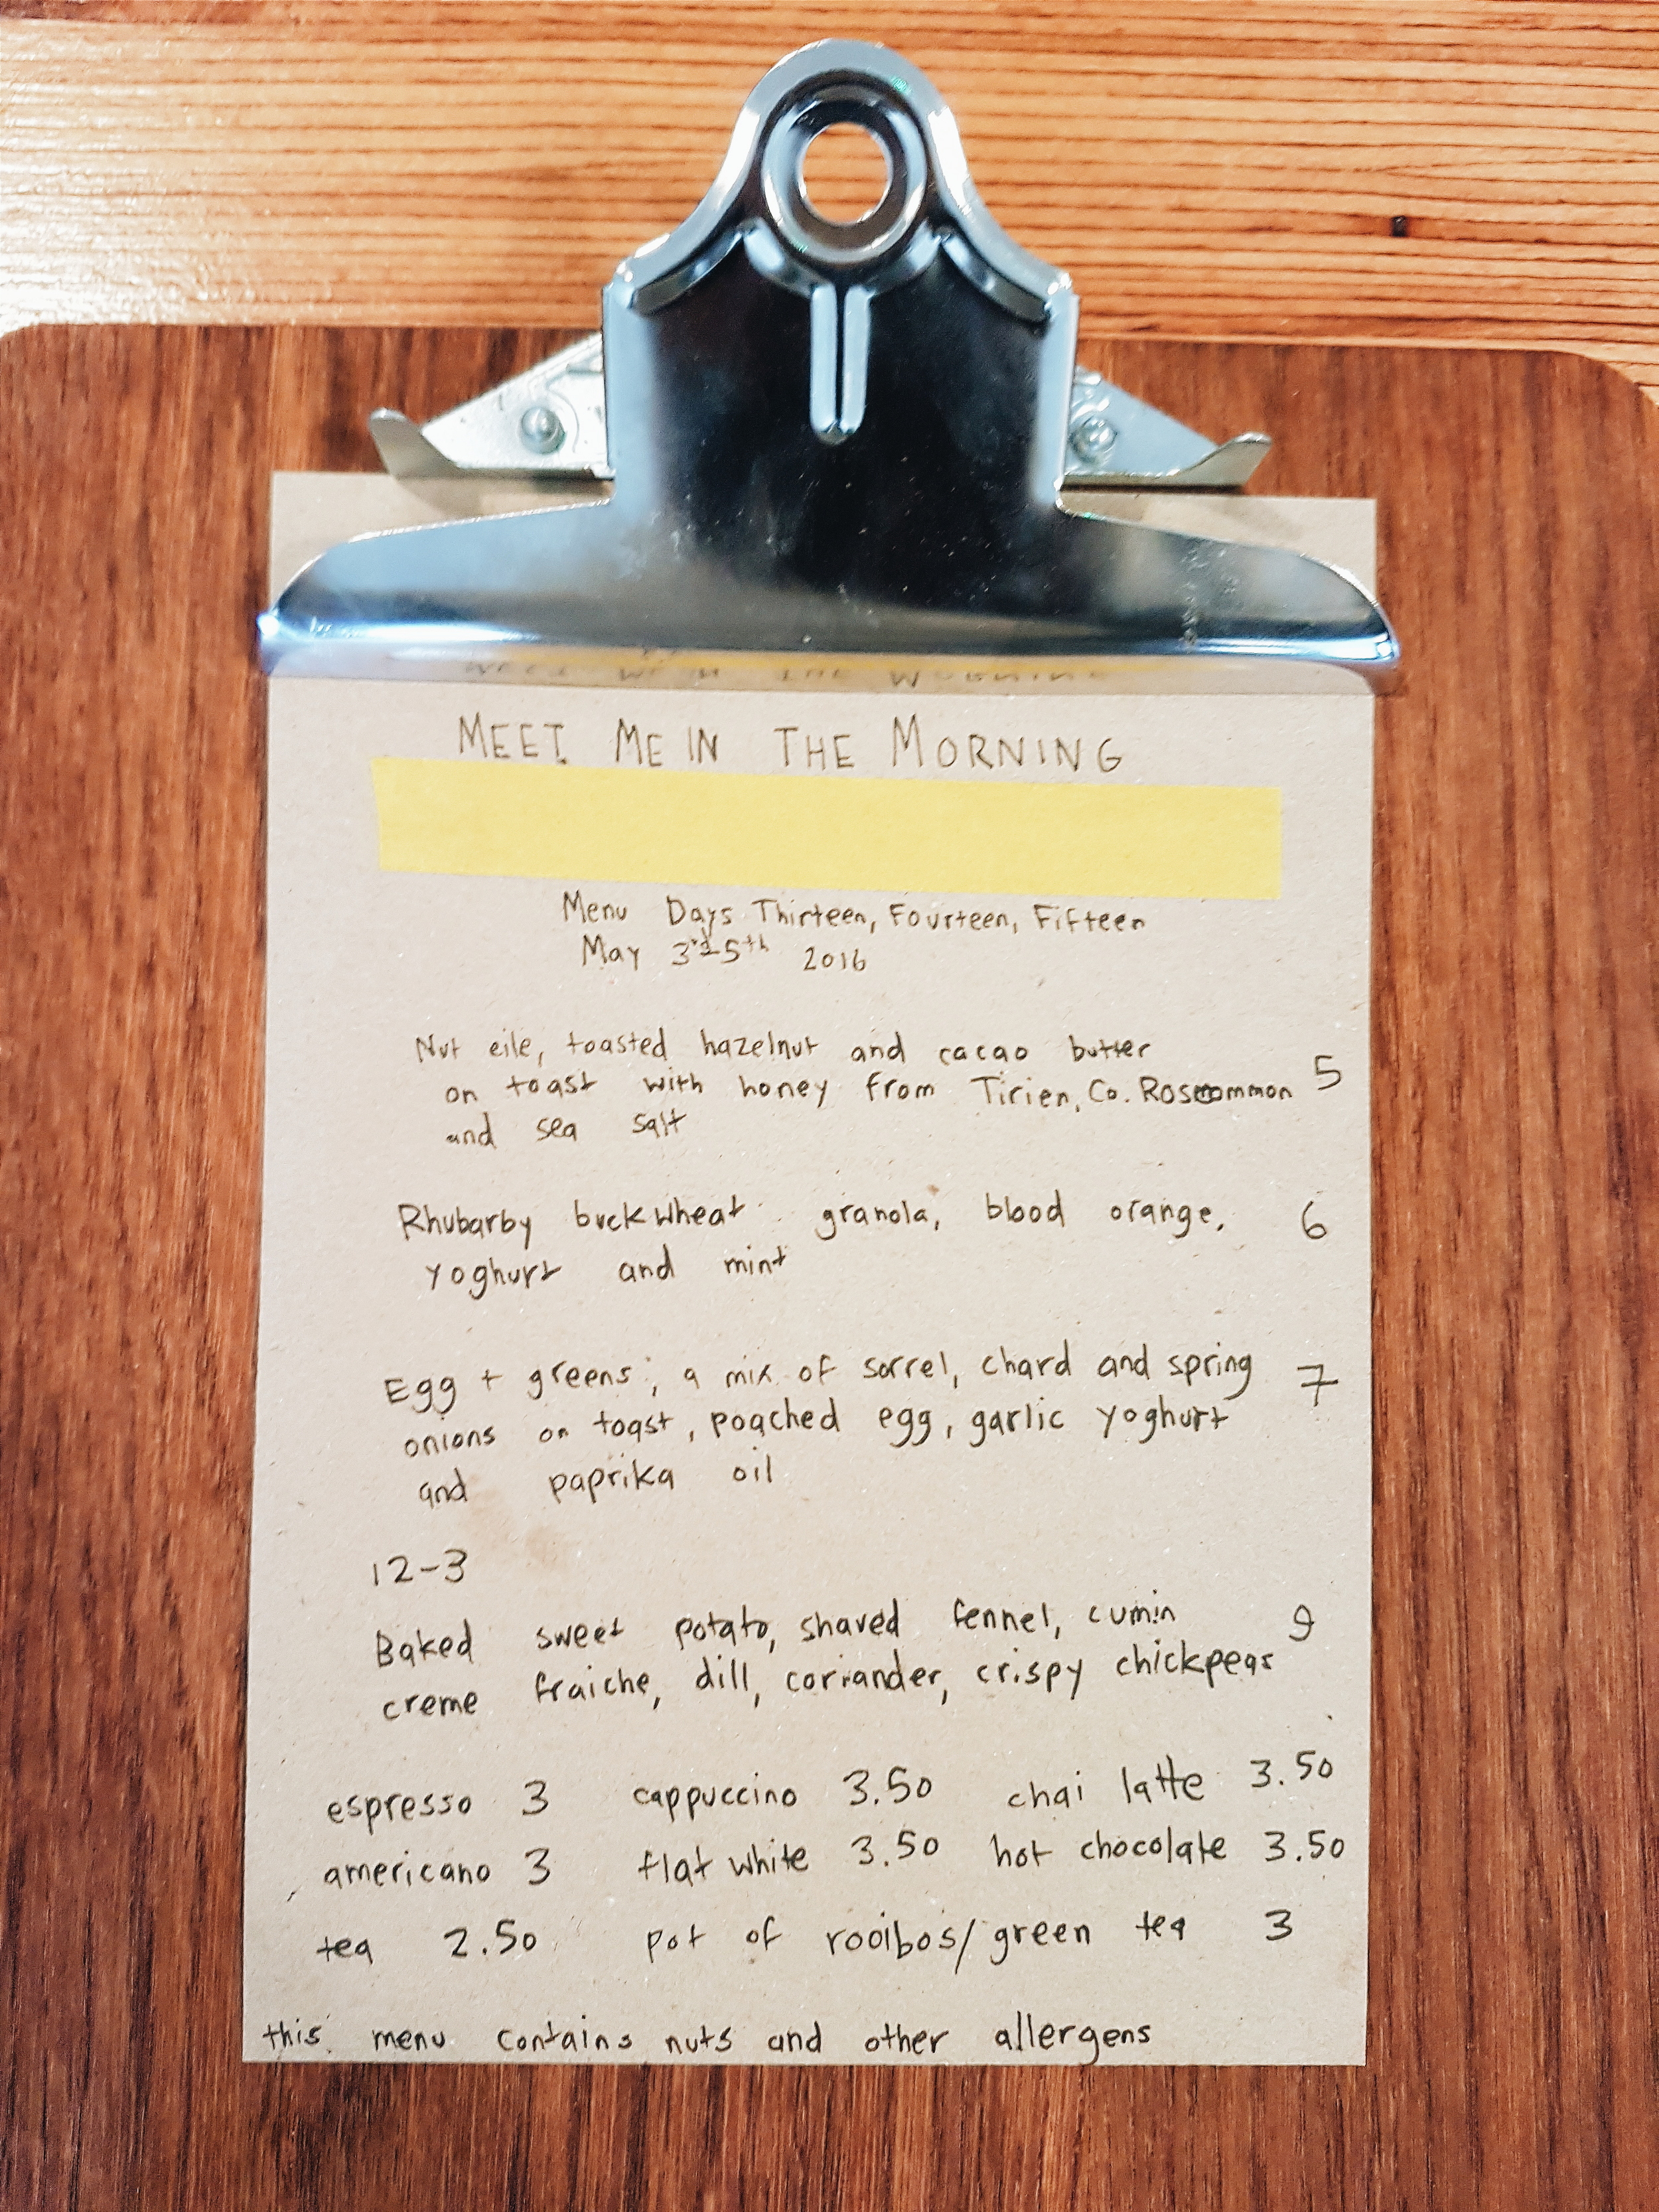 MEET ME IN THE MORNING
Menu Days Thirteen, Fourteen, Fifteen
May 3rd-5th 2016
Nut eile, toasted hazelnut and cacao butter
on toast with honey from Tirien, Co. Roscommon 5
and sea salt
Rhubarby buckwheat granola, blood orange, 6
yoghurt and mint
Egg + greens, a mix of sorrel, chard and spring 7
onions on toast, poached egg, garlic yoghurt
and paprika oil
12-3
Baked sweet potato, shaved fennel, cumin 9
creme fraiche, dill, coriander, crispy chickpeas
espresso 3 cappuccino 3.50 chai latte 3.50
americano 3 flat white 3.50 hot chocolate 3.50
tea 2.50 pot of rooibos/green tea 3
this menu contains nuts and other allergens